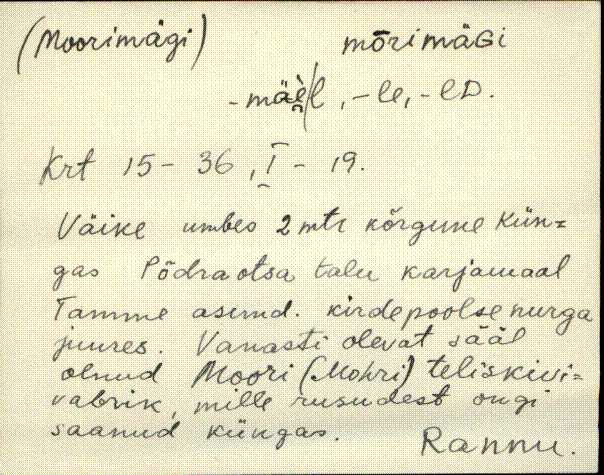 (Moorimägi) mōrimäGi
-mäel, -le, -lD.
Krt 15-36, I - 19.
Väike umbes 2 mtr kõrgune kün=
gas Põdraotsa talu karjamaal
Tamme asund. kirdepoolse nurga
juures. Vanasti olevat sääl
olnud Moori (Mohri) teliskivi=
vabrik, mille rusudest ongi
saanud küngas.
Rannu.